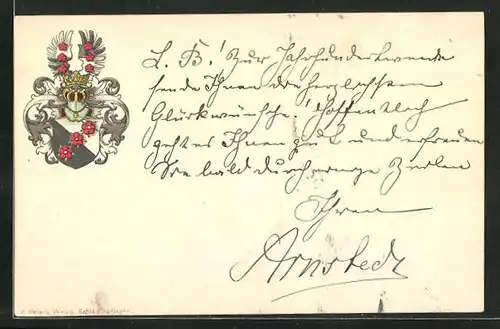 L. B.! Zur Jahrhundertwende
sende Ihnen die herzlichsten
Glückwünsche! Hoffentlich
geht es Ihnen gut und erfreuen
Sie bald durch einige Zeilen
Ihren
Arnstedt